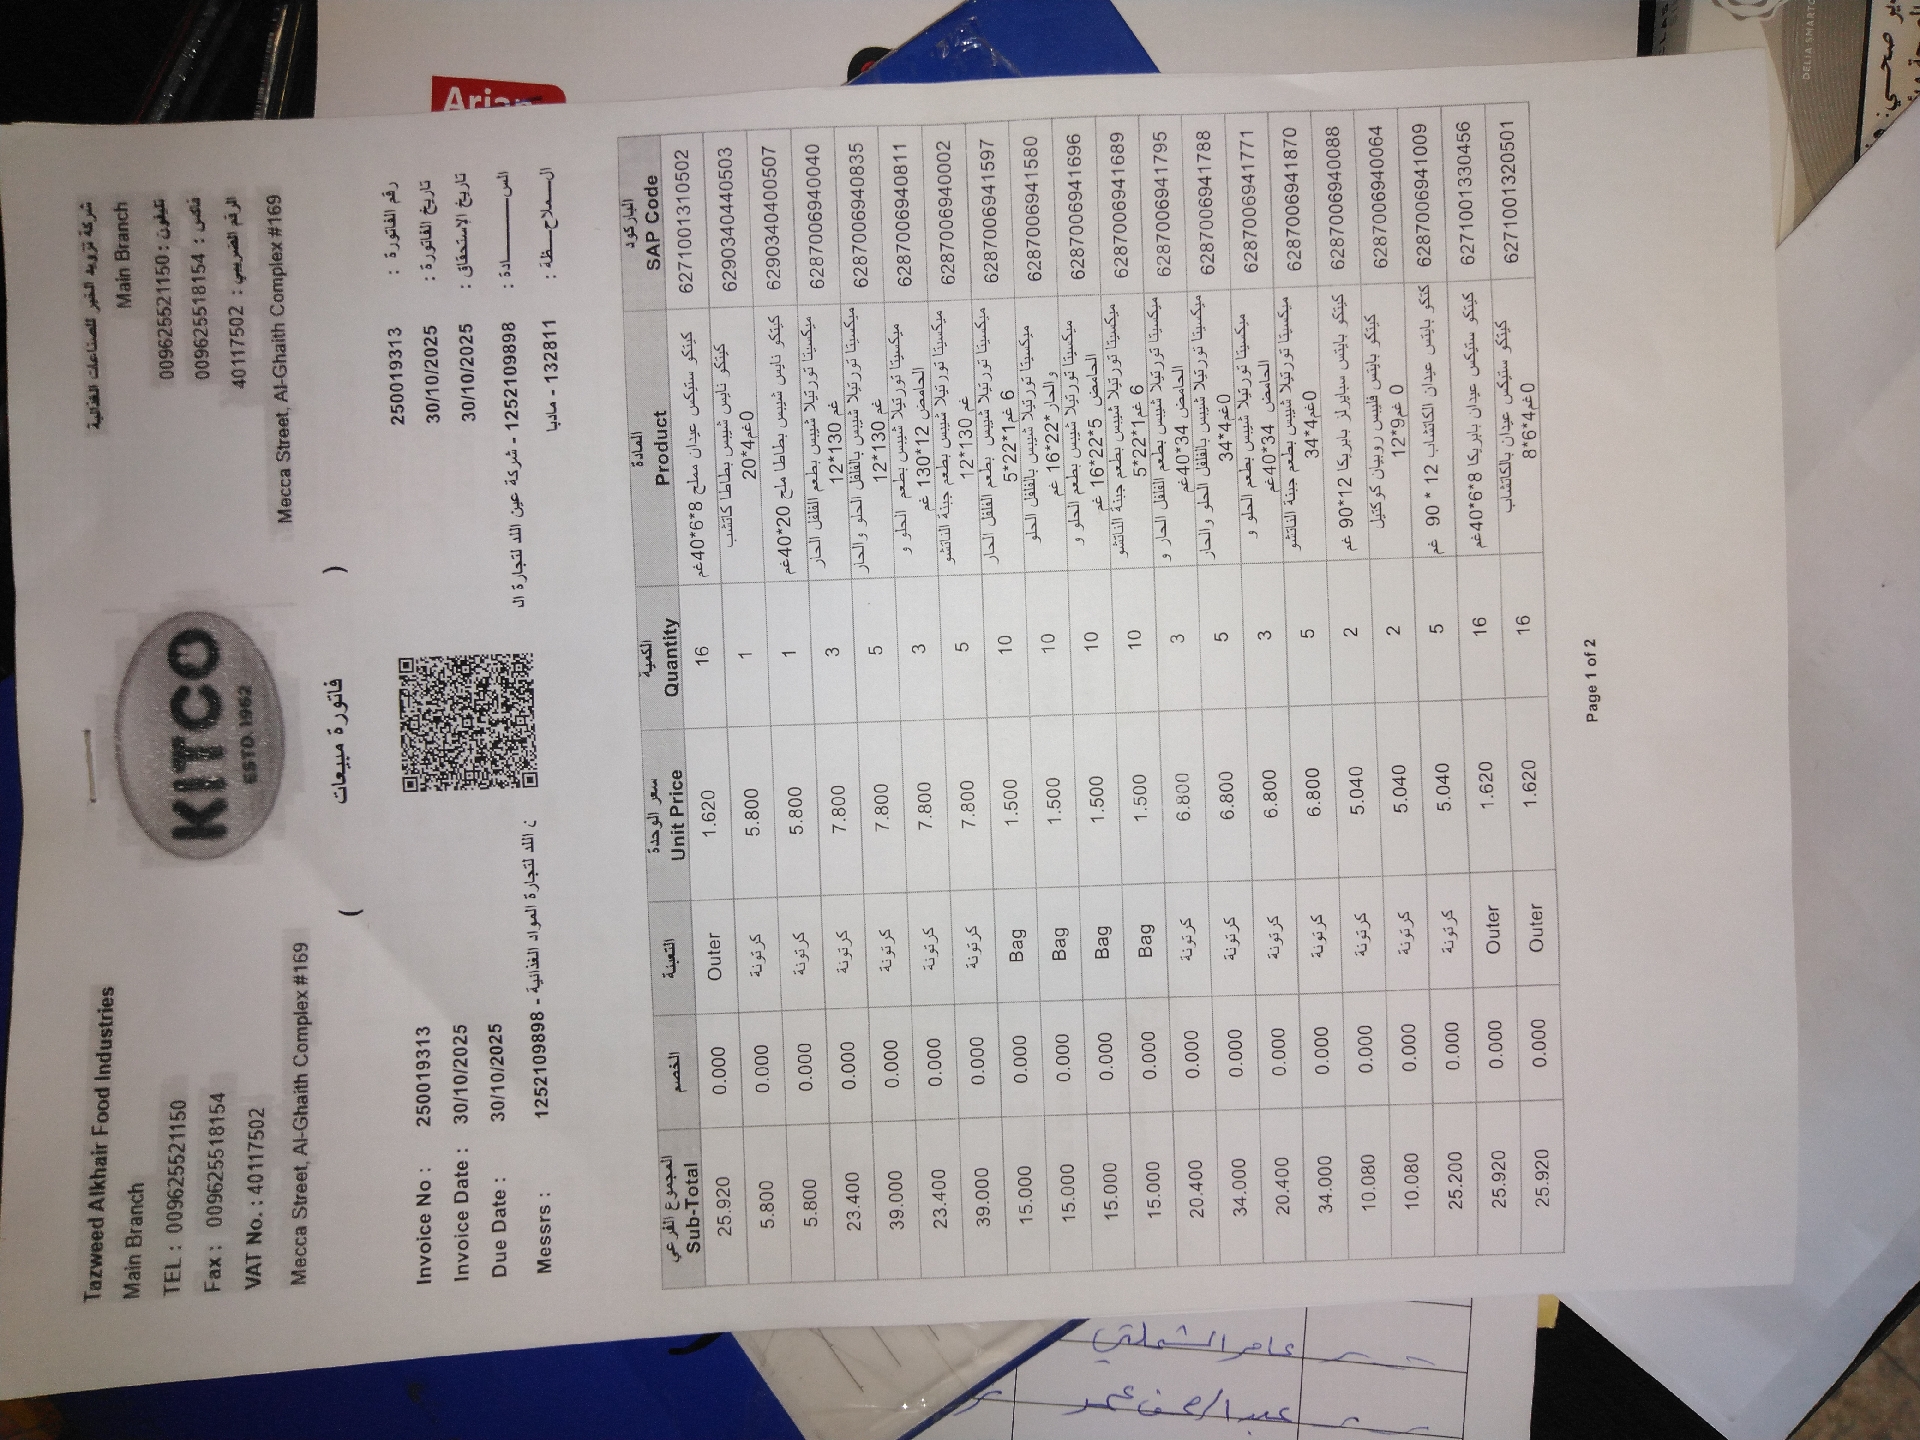 Tazweed Alkhair Food Industries
Main Branch
TEL : 0096255521150
Fax : 0096255518154
VAT No. : 40117502
Mecca Street, Al-Ghaith Complex #169
KITCO
ESTD. 1962
شركة تزويد الخير للصناعات الغذائية
Main Branch
تليفون : 0096255521150
فاكس : 0096255518154
الرقم الضريبي : 40117502
Mecca Street, Al-Ghaith Complex #169
فاتورة مبيعات
( )
Invoice No : 250019313
Invoice Date : 30/10/2025
Due Date : 30/10/2025
Messrs : 1252109898 - ن اللد لتجارة المواد الغذائية
رقم الفاتورة : 250019313
تاريخ الفاتورة : 30/10/2025
تاريخ الإستحقاق : 30/10/2025
الســـــادة : 1252109898 - شركة عين اللد لتجارة ال
132811 - مادبا
المجموع الفرعي الخصم التعبئة سعر الوحدة الكمية المادة الباركود
Sub-Total Unit Price Quantity Product SAP Code
25.920 0.000 Outer 1.620 16 كيتكو ستيكس عيدان مملح 8*6*40غم 6271001310502
5.800 0.000 كرتونة 5.800 1 كيتكو نايس شيبس بطاطا كاتشب 20*4غم0 6290340440503
5.800 0.000 كرتونة 5.800 1 كيتكو نايس شيبس بطاطا ملح 20*40غم 6290340400507
23.400 0.000 كرتونة 7.800 3 ميكسيتا تورتيلا شيبس بطعم الفلفل الحار 12*130 غم 6287006940040
39.000 0.000 كرتونة 7.800 5 ميكسيتا تورتيلا شيبس بالفلفل الحلو والحار 12*130 غم 6287006940835
23.400 0.000 كرتونة 7.800 3 ميكسيتا تورتيلا شيبس بطعم الحلو و الحامض 12*130 غم 6287006940811
39.000 0.000 كرتونة 7.800 5 ميكسيتا تورتيلا شيبس بطعم جبنة الناتشو 12*130 غم 6287006940002
15.000 0.000 Bag 1.500 10 ميكسيتا تورتيلا شيبس بطعم الفلفل الحار 5*22*1غم 6 6287006941597
15.000 0.000 Bag 1.500 10 ميكسيتا تورتيلا شيبس بالفلفل الحلو والحار *22*16 غم 6287006941580
15.000 0.000 Bag 1.500 10 ميكسيتا تورتيلا شيبس بطعم الحلو و الحامض 5*22*16 غم 6287006941696
15.000 0.000 Bag 1.500 10 ميكسيتا تورتيلا شيبس بطعم جبنة الناتشو 5*22*1غم 6 6287006941689
20.400 0.000 كرتونة 6.800 3 ميكسيتا تورتيلا شيبس بطعم الفلفل الحار و الحامض 34*40غم 6287006941795
34.000 0.000 كرتونة 6.800 5 ميكسيتا تورتيلا شيبس بالفلفل الحلو والحار 34*4غم0 6287006941788
20.400 0.000 كرتونة 6.800 3 ميكسيتا تورتيلا شيبس بطعم الحلو و الحامض 34*40غم 6287006941771
34.000 0.000 كرتونة 6.800 5 ميكسيتا تورتيلا شيبس بطعم جبنة الناتشو 34*4غم0 6287006941870
10.080 0.000 كرتونة 5.040 2 كيتكو بايتس سبايرلز بابريكا 12*90 غم 6287006940088
10.080 0.000 كرتونة 5.040 2 كيتكو بايتس فليبس روبيان كوكتيل 12*9غم 0 6287006940064
25.200 0.000 كرتونة 5.040 5 كتكو بايتس عيدان الكاتشاب 12 * 90 غم 6287006941009
25.920 0.000 Outer 1.620 16 كيتكو ستيكس عيدان بابريكا 8*6*40غم 6271001330456
25.920 0.000 Outer 1.620 16 كيتكو ستيكس عيدان بالكاتشاب 8*6*4غم0 6271001320501
Page 1 of 2
DELIA SMARTC